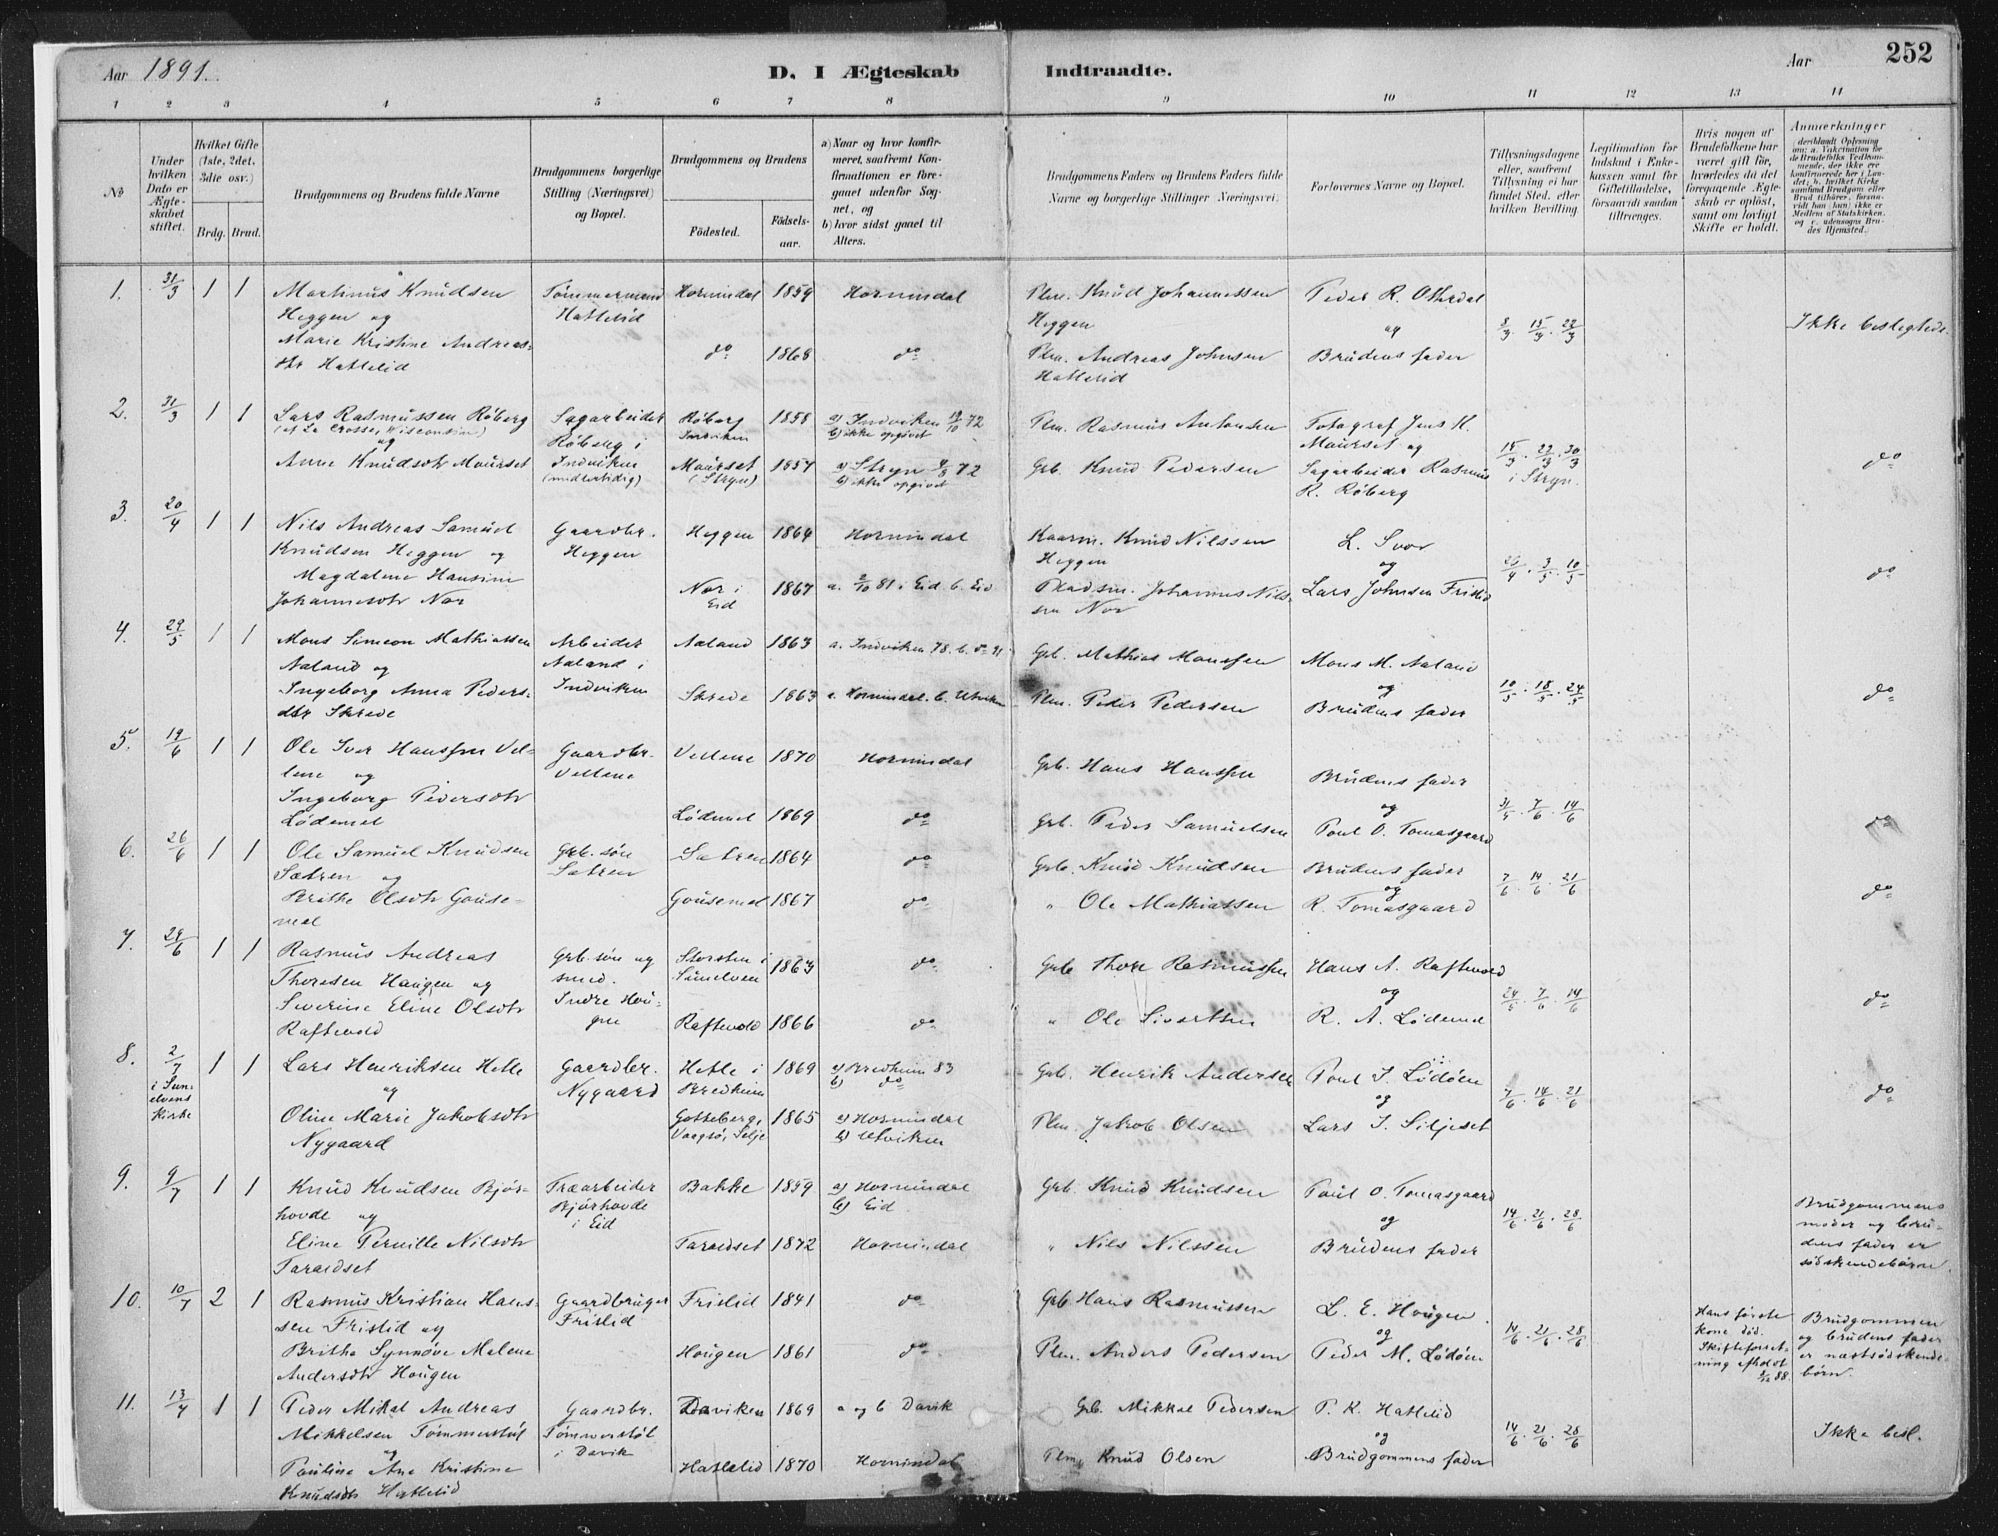 Aar 1891.
D. I Ægteskab Indtraadte.
Aar
252
1 2 3 4 5 6 7 8 9 10 11 12 13 14
№
Under hvilken Dato er Ægteskabet stiftet.
Hvilket Gifte (1ste, 2det, 3die osv.)
Brdg. Brud.
Brudgommens og Brudens fulde Navne
Brudgommens borgerlige Stilling (Næringsvei) og Bopæl.
Brudgommens og Brudens
Fødested.
Fødselsaar.
a) Naar og hvor konfirmeret, saafremt Konfirmationen er foregaaet udenfor Sognet, og
b) hvor sidst gaaet til Alters.
Brudgommens Faders og Brudens Faders fulde Navne og borgerlige Stillinger Næringsvei.
Forlovernes Navne og Bopæl.
Tillysningsdagene eller, saafremt Tillysning ei har fundet Sted, efter hvilken Bevilling.
Legitimation for Indskud i Enkekassen samt for Giftetilladelse, forsaavidt saadan tiltrænges.
Hvis nogen af Brudefolkene har været gift før, hvorledes da det foregaaende Ægteskab er opløst, samt om lovligt Skifte er holdt.
Anmærkninger
(deriblandt Oplysning om: a. Vakcination for de Brudefolks Vedkommende, der ikke ere konfirmerede her i Landet; b. hvilket Kirkesamfund Brudgom eller Brud tilhører, forsaavidt han (hun) ikke er Medlem af Statskirken, og c. udensogns Brudes Hjemsted.)
1. 31/3 1 1 Martinus Knudsen Tømmermand Hornindal 1859 Hornindal Plm. Knud Johannessen Peder R. Otterdal
Heggen og Hattelid Heggen og 8/3. 15/3. 22/3 Ikke beslegtede.
Marie Kristine Andreas- do 1868 do Plm. Andreas Johnsen Brudens fader
dtr Hattelid Hattelid
2. 31/3 1 1 Lars Rasmussen Røberg Sagarbeider Røberg 1858 a) Indviken 19/10 72 Plm. Rasmus Antonsen Fotograf Jens K.
(af La Crosse, Wisconsin) Røberg i Indviken b) ikke opgivet Maurset og
og 15/3. 22/3. 30/3
Anne Knudsdtr Maurset Indviken Maurset 1857 a) Stryn 4/8 72 Grb. Knud Pedersen Sagarbeider Rasmus i Stryn. do
(midlertidig) (Stryn) b) ikke opgivet R. Røberg
3. 20/4 1 1 Nils Andreas Samuel Gaardbr. Heggen 1864 Hornindal Kaarm. Knud Nilssen L. Svor
Knudsen Heggen og Heggen Heggen og 26/4. 3/5. 10/5 do
Magdalene Hansine Nor i 1867 a. 2/10 81 i Eid b. Eid Pladsm. Johannes Nils- Lars Johnsen Frislid
Johannesdtr Nor Eid sen Nor
4. 29/5 1 1 Mons Simeon Mathiassen Arbeider Aaland 1863 a. Indviken 78. b. do 91 Grb. Mathias Monssen Mons M. Aaland
Aaland og Aaland i og 10/5. 18/5. 24/5 do
Ingeborg Anna Peders- Indviken Skrede 1863 a. Hornindal. b. Utviken Plm. Peder Pedersen Brudens fader
dtr Skrede
5. 19/6 1 1 Ole Iver Hanssen Vel- Gaardbr. Vellene 1870 Hornindal Grb. Hans Hanssen Brudens fader
lene og Vellene og 31/5. 7/6. 14/6
Ingeborg Pedersdtr Lødemel 1869 do Grb. Peder Samuelsen Poul O. Tomasgaard do
Lødemel
6. 26/6 1 1 Ole Samuel Knudsen Grb. søn Sætren 1864 do Grb. Knud Knudsen Brudens fader
Sætren og Sætren og 7/6. 14/6. 21/6
Brithe Olsdtr Gause- Gousemel 1867 do " Ole Mathiassen R. Tomasgaard do
mel
7. 24/6 1 1 Rasmus Andreas Grb. søn og Storsten i 1863 do Grb Thore Rasmussen Hans A. Raftevold
Thoresen Haugen og smed. Sunelven og 24/5. 7/6. 14/6 do
Severine Eline Olsdtr Indre Hou- Raftevold 1866 do " Ole Sivertsen R. A. Lødemel
Raftevold gen
8. 2/7 1 1 Lars Henriksen Hetle Gaardbr. Hetle i 1869 a) Bredheim 83 Grb. Henrik Andersen Poul I. Lødøen
i Sunelvens Kirke og Nygaard Bredheim b) do og 7/6. 14/6. 21/6 do
Oline Marie Jakobsdtr Gotteberg, 1865 a) Hornindal Plm. Jakob Olsen Lars I. Siljeset
Nygaard Vaagsø, Selje b) Utviken
9. 9/7 1 1 Knud Knudsen Bjør- Træarbeider Bakke 1859 a) Hornindal Grb. Knud Knudsen Poul O. Tomasgaard
hovde og Bjørhovde i Eid b) Eid. og 14/6. 21/6. 28/6 Brudgommens moder og brudens fader er sødskendebørn.
Eline Pernille Nilsdtr Taraldset 1872 Hornindal " Nils Nilssen Brudens fader
Taraldset
10. 10/7 2 1 Rasmus Kristian Hans- Gaardbruger Frislid 1841 do Grb Hans Rasmussen L. E. Hougen
sen Frislid og Frislid og 14/6. 21/6. 28/6 Hans første kone død. Skifteforretning afholdt 5/12 88. Brudgommen og brudens fader er næstsødskendebørn.
Britha Synnøve Malene Hougen 1861 do Plm. Anders Pedersen Peder M. Lødøen
Andersdtr Hougen
11. 13/7 1 1 Peder Mikal Andreas Gaardbr. Daviken 1869 a og b Davik Grb. Mikkal Pedersen P. K. Hattelid
Mikkelsen Tømmerstøl Tømmerstøl og 14/6. 21/6. 28/6 Ikke besl.
og i Davik
Pauline Ane Kristine Hattelid 1870 Hornindal Plm. Knud Olsen Brudgommens fader
Knudsdtr Hattelid